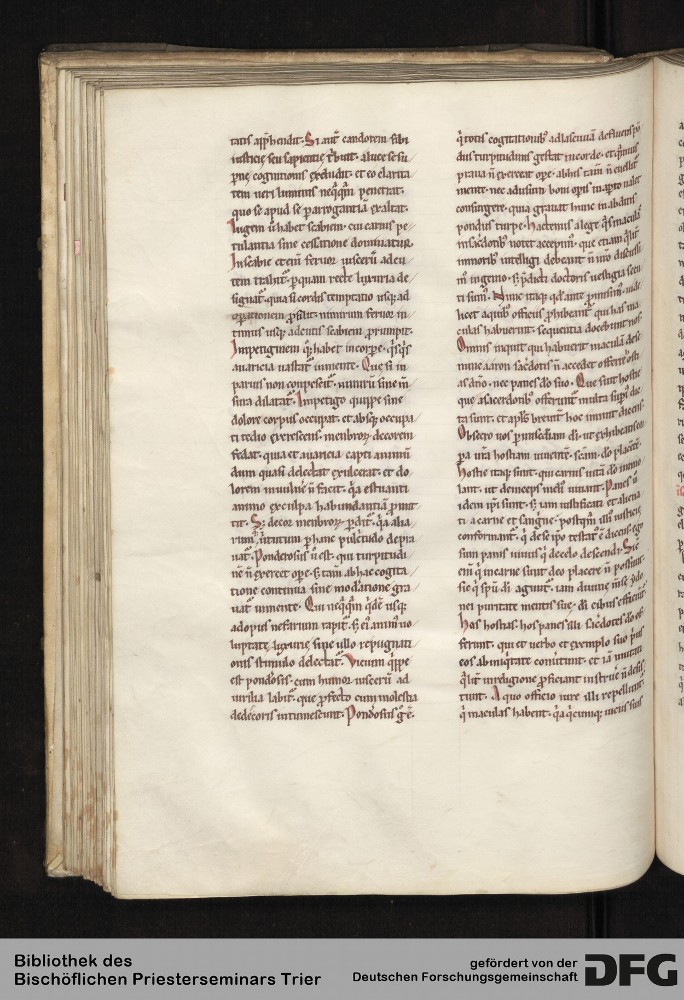 tatis app̄hendit. Si aut̄ candorem sibi
iusticię seu sapientię t̄buit. a luce se su
p̄nę cognitionis excludit. et eo clarita
tem ueri luminis neq̄q̄m penetrat.
quo se apud se p̄ arrogantiā exaltat.
Iugem ū habet scabiem. cui carnis pe
tulantia sine cessatione dominatur.
In scabie etenī feruor uiscerū ad cu
tem trahit̄. p̄ quam recte luxuria de
signat̄. quia si cordis temptatio usq; ad
operationem p̄silit. nimirum feruor in
timus usq; ad cutis scabiem prrumpit.
Impetiginem q̄; habet in corp̄e. q̄sq̄s
auaricia uastat̄ in mente. Que si in
paruis non conpescit̄. nimirū sine m̄
sura dilatat̄. Impetigo quippe sine
dolore corpus occupat. et absq; occupa
ti tedio excrescens. menbroꝝ decorem
fedat. quia et auaricia capti animū
dum quasi delectat exulcerat. et do
lorem in uulnē n̄ facit. q̄a estuanti
animo ex culpa habundantiā p̄mit
tit. S; decor menbroꝝ p̄dit̄. q̄a alia
rum uirtutum p̄ hanc pulc̄tudo depra
uat̄. Ponderosus ū est. qui turpitudi
nē n̄ exercet ope. s; tam̄ ab hac cogita
tione continua sine mod̄atione gra
uat̄ in mente. Qui neq̄q̄m q̄dē usq;
ad opus nefarium rapit̄. s; ei animꝰ uo
luptate luxurię sine ullo repugnati
onis stimulo delectat̄. Vicium q̄ppe
est pond̄osis. cum humor uiscerū ad
uirilia labit̄. que p̄fecto cum molestia
dedecoris intumescunt. Pond̄osus g̊ ē.
q̄ totis cogitationib; ad lasciuiā defluens pō
dus turpitudinis gestat in corde. et q̄muis
praua n̄ exerceat ope. ab his tam̄ n̄ euellit̄
mente. nec ad usum boni operis in apto ualet
consurgere. quia grauat hunc in abditis
pondus turpe. Hactenus a lege q̄s maculas
in sac̄dotib; notet accepim̄. que etiam q̄lit̄
minorib; intelligi debeant n̄ n̄ro discussi
m̄ ingenio. s; p̄dicti doctoris uestigia secu
ti sum̄. Nunc itaq; qd̄ ante p̄misim̄. uide
licet a quib; officiis p̄hibeant̄ qui has ma
culas habuerint. sequentia docebunt nos.
Omnis inquit qui habuerit maculā de se
mine aaron sac̄dotis n̄ accedet offerre hosti
as dn̄o. nec panes dō suo. Que sint hostie
que a sacerdotib; offerunt̄ multa sup̄ius dic
ta sunt. et apl̄s breuit̄ hoc innuit dicens.
Obsecro uos p̄ misc̄diam dī. ut exhibeatis cor
p̄a ur̄a hostiam uiuentē. scam. dō placētē.
Hostie itaq; sunt. qui carnis uitā dō immo
lant. ut deinceps meli uiuant. Panes ū
idem ip̄i sunt. s; iam iustificati et aliena
ti a carne et sangine. postq̄m illi iusticię
conformant̄. q̄ de se ip̄o testat̄ ē dicens. ego
sum panis uiuus q̄ de cęlo descendi. Sic
enī q̄ in carne sunt deo placere n̄ possunt.
sic q̄ sp̄u dī agunt̄. iam diuinę m̄se ydo
nei puritate mentis sue. dī cibus efficiunt̄.
Has hostias. hos panes illi sac̄dotes dō of
ferunt. qui et uerbo et exemplo suo p̄us
eos ab iniq̄tate conuertunt. et iā mutati
q̄lit̄ in religione p̄ficiant instruē n̄ desis
tunt. A quo officio iure illi repellunt̄.
q̄ maculas habent. q̄a q̄cumq; uiciis suis
Bibliothek des
Bischöflichen Priesterseminars Trier
gefördert von der
Deutschen Forschungsgemeinschaft
DFG